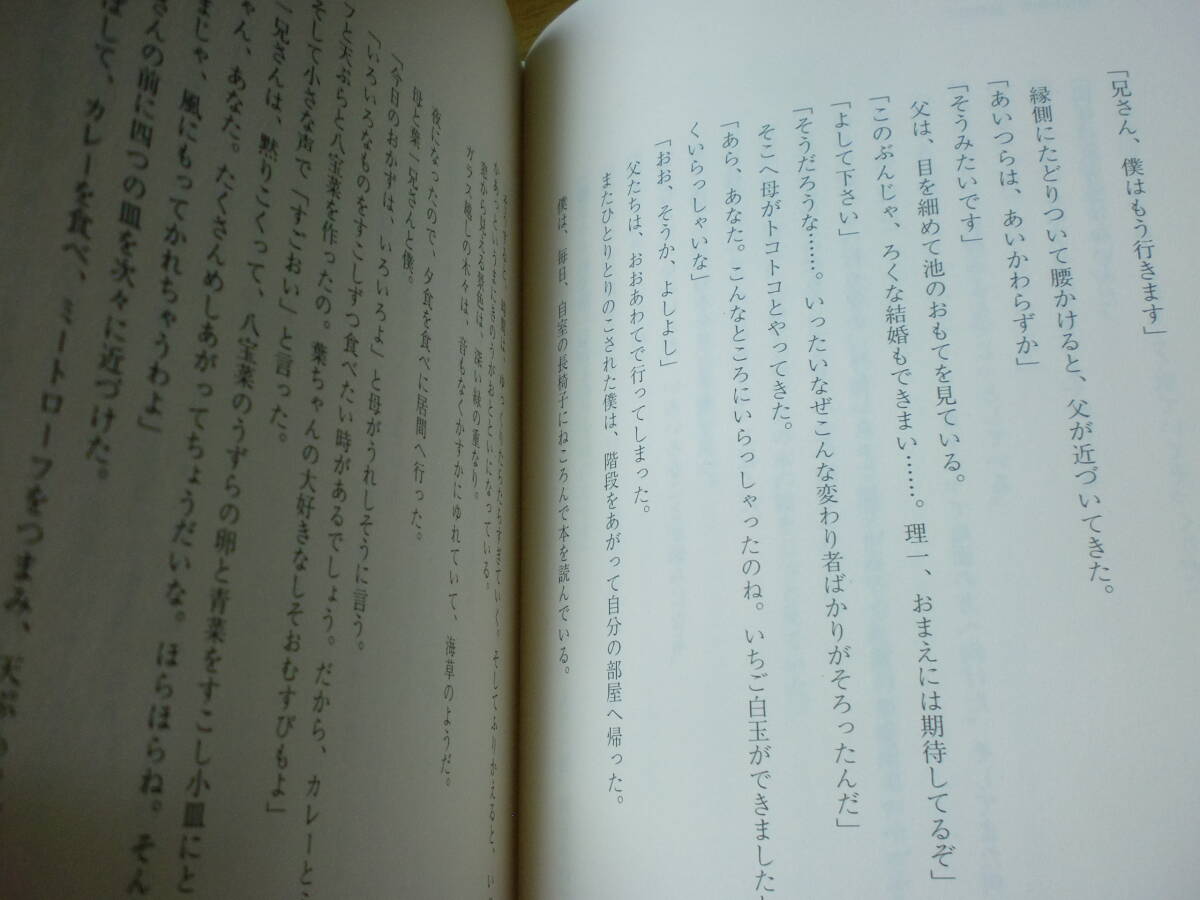 「兄さん、僕はもう行きます」
縁側にたどりついて腰かけると、父が近づいてきた。
「あいつらは、あいかわらずか」
「そうみたいです」
父は、目を細めて池のおもてを見ている。
「このぶんじゃ、ろくな結婚もできまい……。理一、おまえには期待してるぞ」
「よして下さい」
「そうだろうな……。いったいなぜこんな変わり者ばかりがそろったんだ」
そこへ母がトコトコとやってきた。
「あら、あなた。こんなところにいらっしゃったのね。いちご白玉ができましたと
くいらっしゃいな」
「おお、そうか、よしよし」
父たちは、おおあわてで行ってしまった。
またひとりとりのこされた僕は、階段をあがって自分の部屋へ帰った。
僕は、毎日、自室の長椅子にねころんで本を読んでいる。
そうすると、時間は、ゆっくりたらたらすぎていく。そしてふりかえると、い
かあっというまにきのうがおとといになっている。
窓から見える景色は、深い緑の重なり。
ガラス越しの木々は、音もなくかすかにゆれていて、海草のようだ。
夜になったので、夕食を食べに居間へ行った。
母と葉一兄さんと僕。
「今日のおかずは、いろいろよ」と母がうれしそうに言う。
「いろいろなものをすこしずつ食べたい時があるでしょう。だから、カレーと、
フと天ぷらと八宝菜を作ったの。葉ちゃんの大好きなしそおむすびもよ」
そして小さな声で「すごおい」と言った。
一兄さんは、黙りこくって、八宝菜のうずらの卵と青菜をすこし小皿にと
ゃん、あなた。たくさんめしあがってちょうだいな。ほらほらね。そん
まじゃ、風にもってかれちゃうわよ」
さんの前に四つの皿を次々に近づけた。
ばして、カレーを食べ、ミートローフをつまみ、天ぷ